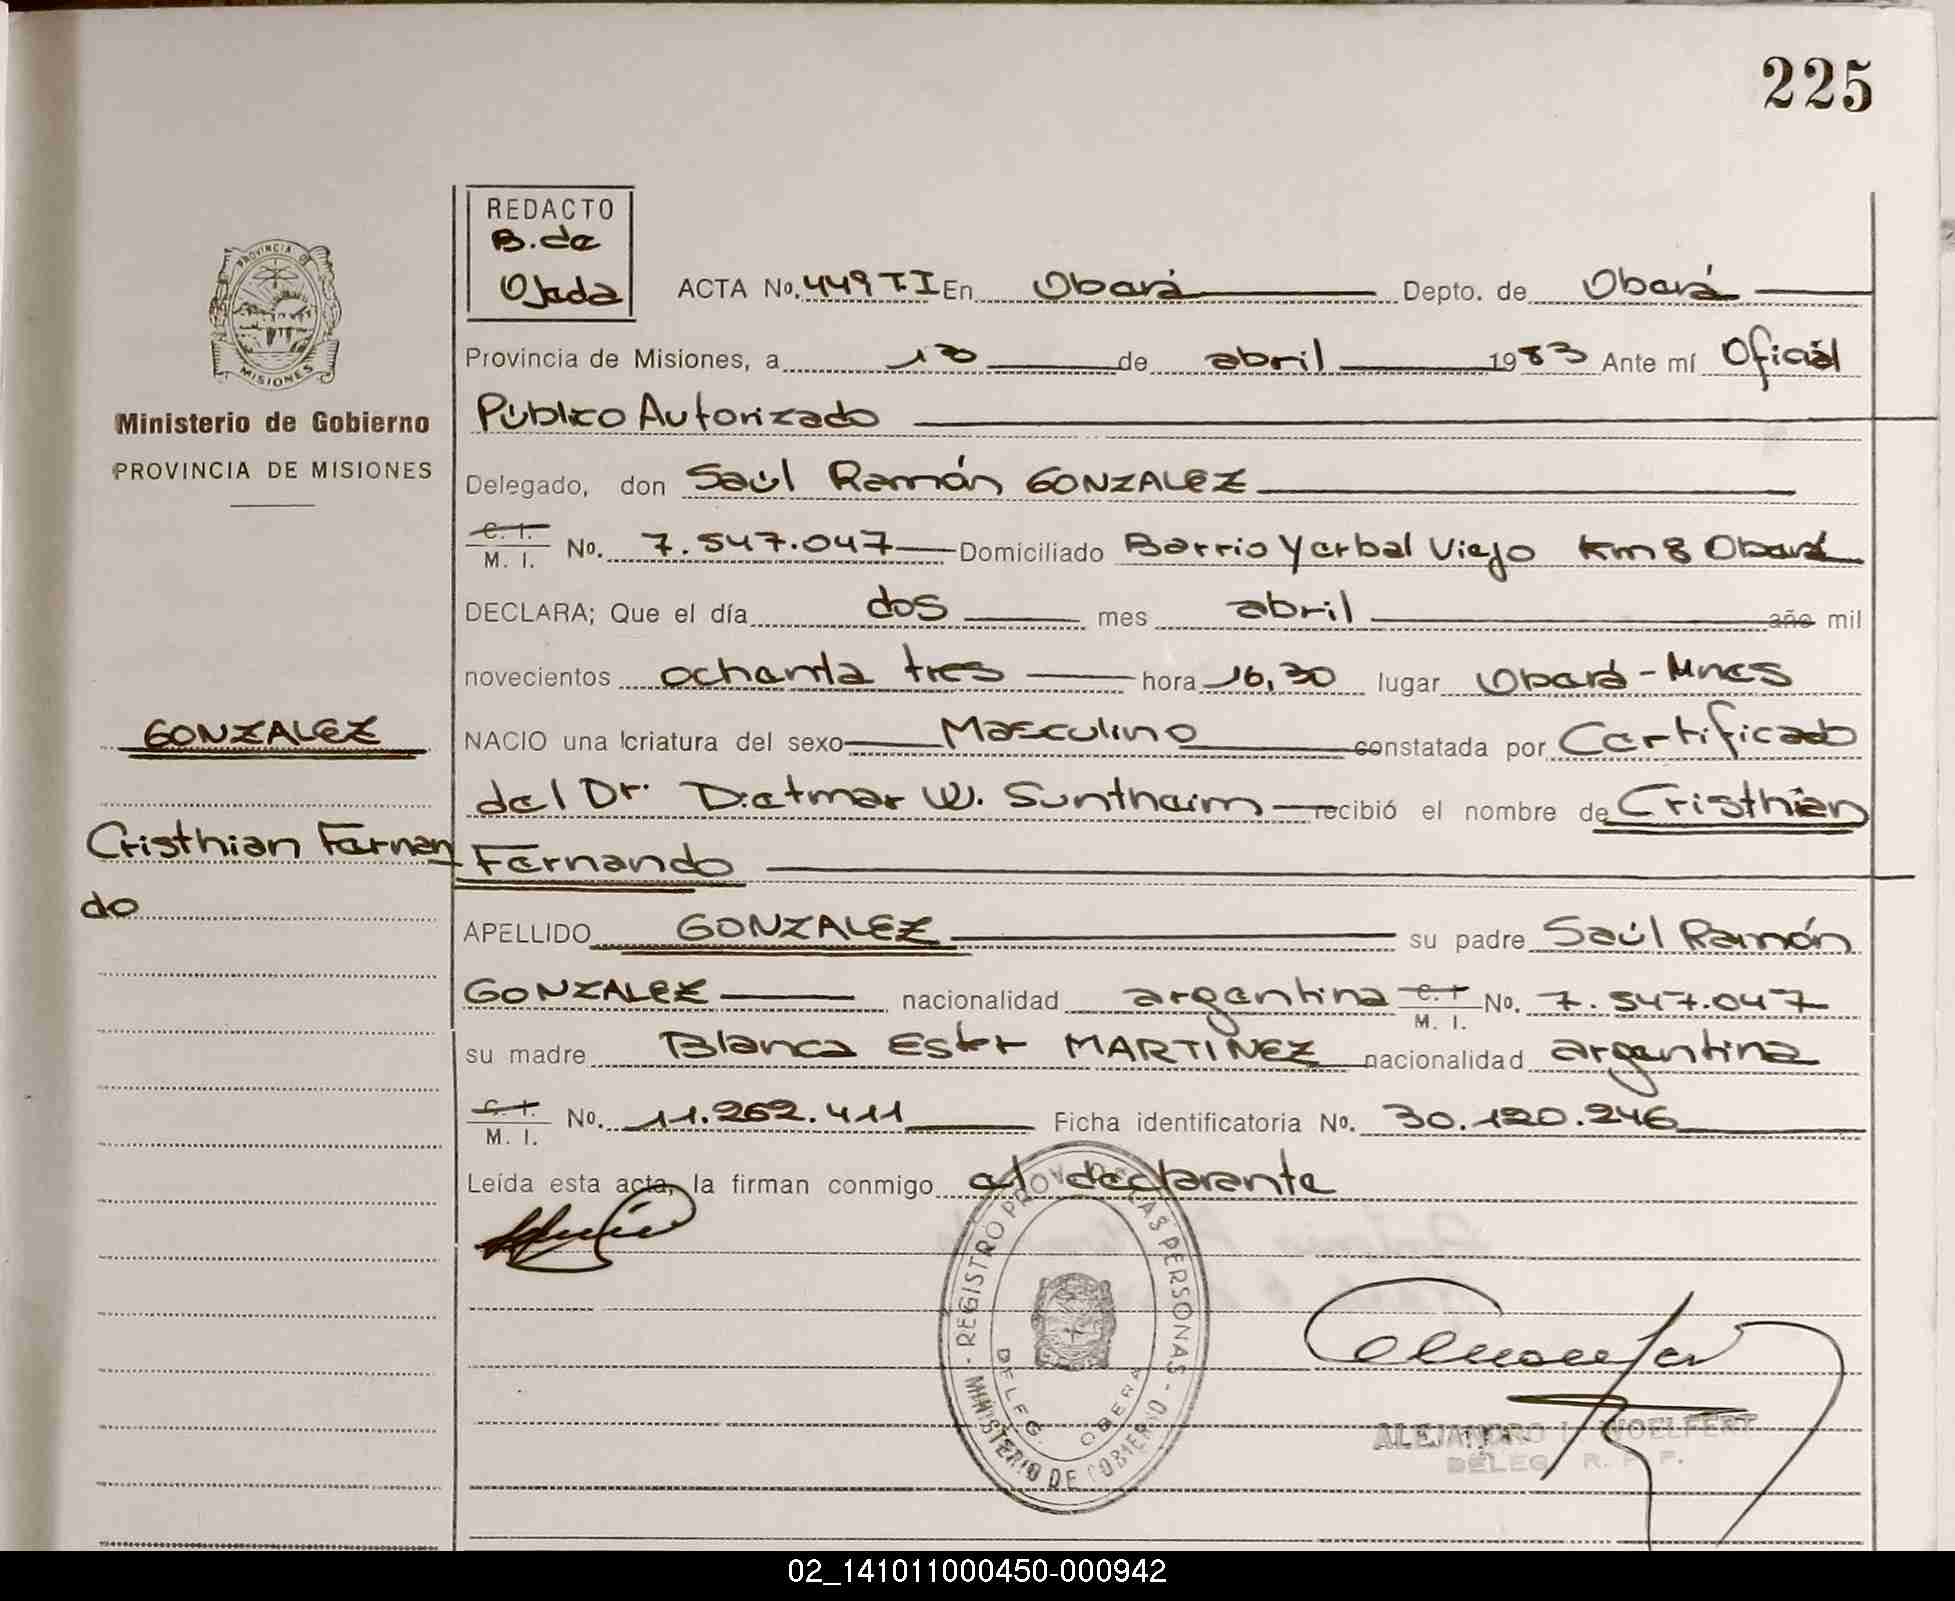 225
REDACTO
B. de
Ojeda
PROVINCIA D
MISIONES
Ministerio de Gobierno
PROVINCIA DE MISIONES
ACTA No. 449 T.I En Oberá Depto. de Oberá
Provincia de Misiones, a 13 de abril 1983 Ante mí Oficial
Público Autorizado
Delegado, don Saúl Ramón GONZALEZ
C. I.
M. I. No. 7.547.047 Domiciliado Barrio Yerbal Viejo Km 8 Oberá
DECLARA; Que el día dos mes abril año mil
novecientos ochenta tres hora 16,30 lugar Oberá - Mnes
NACIO una criatura del sexo Masculino constatada por Certificado
del Dr. Dietmar W. Suntheim recibió el nombre de Cristhian
Fernando
GONZALEZ
Cristhian Fernan
do
APELLIDO GONZALEZ su padre Saúl Ramón
GONZALEZ nacionalidad argentina C. I. M. I. No. 7.547.047
su madre Blanca Ester MARTINEZ nacionalidad argentina
C. I.
M. I. No. 11.262.411 Ficha identificatoria No. 30.120.246
Leída esta acta, la firman conmigo el declarante
REGISTRO PROV. DE LAS PERSONAS - MINISTERIO DE GOBIERNO
DELEG. OBERA
ALEJANDRO L. WOELFERT
DELEG. R. P. P.
02_141011000450-000942